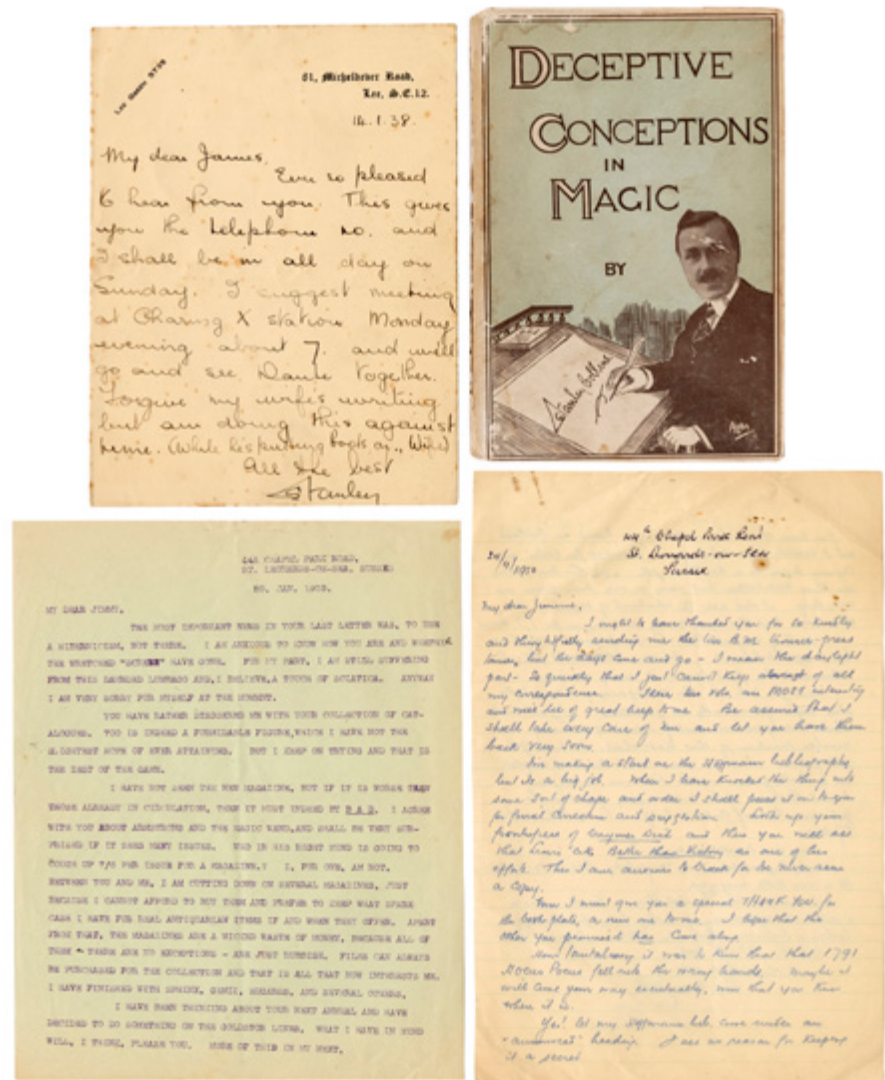 Lee Green 5799
61, Micheldever Road,
Lee, S.E.12.
14.1.38.
My dear James,
Ever so pleased
to hear from you. This gives
you the telephone no. and
I shall be in all day on
Sunday. I suggest meeting
at Charing X station Monday
evening about 7. and we'll
go and see Dante together.
Forgive my wife's writing
but am doing this against
time. (While he's putting books away, Wife)
All the best
Stanley
DECEPTIVE
CONCEPTIONS
IN
MAGIC
BY
Stanley Collins
44A CHAPEL PARK ROAD,
ST. LEONARDS-ON-SEA, SUSSEX
JAN.
MY DEAR JIMMY,
THE MOST IMPORTANT NEWS IN YOUR LAST LETTER WAS, TO USE
A WITTICISM, NOT THERE. I AM ANXIOUS TO KNOW HOW YOU ARE AND WHETHER
THE WRETCHED HAVE GONE. FOR MY PART, I AM STILL SUFFERING
FROM THIS LUMBAGO AND, I BELIEVE, A TOUCH OF SCIATICA. ANYWAY
I AM VERY SORRY FOR MYSELF AT THE MOMENT.
YOU HAVE RATHER STAGGERED ME WITH YOUR COLLECTION OF CAT-
ALOGUES. 700 IS INDEED A FORMIDABLE FIGURE, WHICH I HAVE NOT THE
SLIGHTEST HOPE OF EVER ATTAINING. BUT I KEEP ON TRYING AND THAT IS
THE BEST OF THE GAME.
I HAVE NOT SEEN THE NEW MAGAZINE, BUT IF IT IS WORSE THAN
THOSE ALREADY IN CIRCULATION, THEN IT MUST INDEED BE BAD. I AGREE
WITH YOU ABOUT ARMSTRONG AND THE MAGIC WAND, AND SHALL BE VERY SUR-
PRISED IF IT SEES MANY ISSUES. WHO IN HIS RIGHT MIND IS GOING TO
COUGH UP 7/6 PER ISSUE FOR A MAGAZINE? I, FOR ONE, AM NOT.
BETWEEN YOU AND ME, I AM CUTTING DOWN ON SEVERAL MAGAZINES, JUST
BECAUSE I CANNOT AFFORD TO BUY THEM AND PREFER TO KEEP WHAT SPARE
CASH I HAVE FOR REAL ANTIQUARIAN ITEMS IF AND WHEN THEY OFFER. APART
FROM THAT, THE MAGAZINES ARE A WICKED WASTE OF MONEY, BECAUSE ALL OF
THEM - THERE ARE NO EXCEPTIONS - ARE JUST RUBBISH. FILES CAN ALWAYS
BE PURCHASED FOR THE COLLECTION AND THAT IS ALL THAT NOW INTERESTS ME.
I HAVE FINISHED WITH SPHINX, GENII, AND SEVERAL OTHERS.
I HAVE BEEN THINKING ABOUT YOUR NEXT ANNUAL AND HAVE
DECIDED TO DO SOMETHING ON THE GOLDSTON LINES. WHAT I HAVE IN MIND
WILL, I THINK, PLEASE YOU. MORE OF THIS IN MY NEXT.
44a Chapel Park Road
St. Leonards-on-Sea
Sussex
My dear Jimmie,
I ought to have thanked you for so kindly
and thoughtfully sending me the two B.M. great
but the days come and go - I mean the daylight
part - so quickly that I just cannot keep abreast of all
my correspondence. These two vols are MOST interesting
and will be of great help to me. Be assured that I
shall take every care of them and let you have them
back very soon.
I'm making a start on the Hoffmann bibliography
but it's a big job. When I have knocked the thing into
some sort of shape and order I shall pass it on to you
for final correction and suggestion. Look up your
frontispiece of and there you will see
that Lewis cites Better than Victory as one of his
efforts. This I am anxious to for I've never seen
a copy.
Now I must give you a special THANK YOU for
the bookplate, a new one to me. I hope that the
other you promised has come along.
How tantalising it was to know that that 1791
Hocus Pocus fell into the wrong hands. Maybe it
will come your way eventually, now that you know
where it is.
Yes! let my Hoffmann bib. come under an
"announced" heading. I see no reason for keeping
it a secret